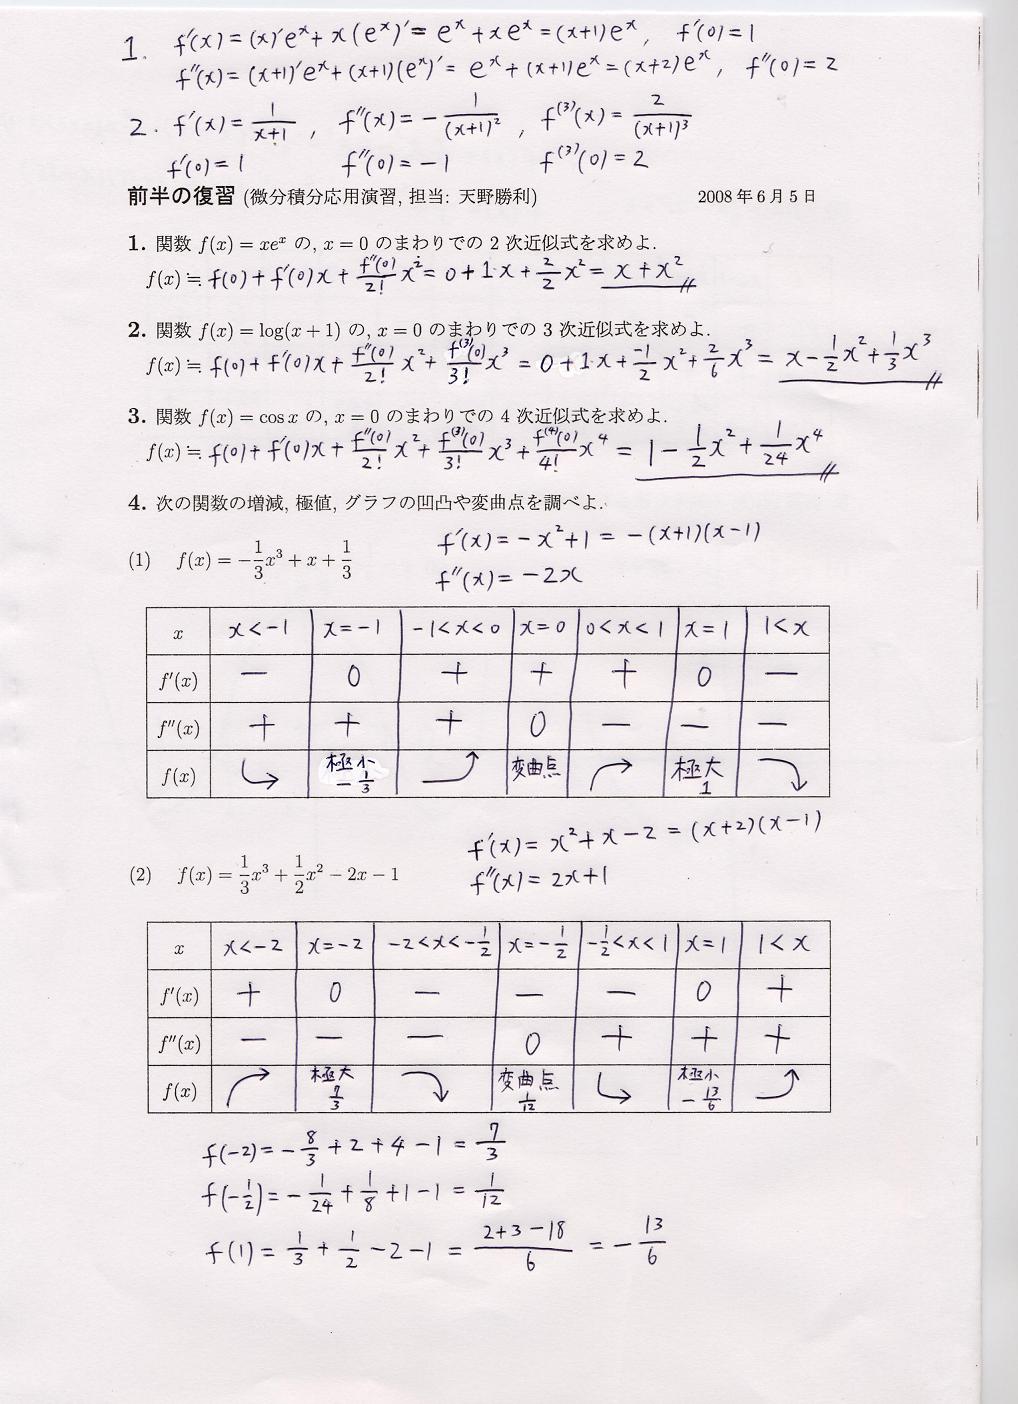 1. f'(x) = (x)'eˣ + x(eˣ)' = eˣ + xeˣ = (x+1)eˣ, f'(0) = 1
f''(x) = (x+1)'eˣ + (x+1)(eˣ)' = eˣ + (x+1)eˣ = (x+2)eˣ, f''(0) = 2
2. f'(x) = 1/(x+1), f''(x) = -1/(x+1)², f⁽³⁾(x) = 2/(x+1)³
f'(0) = 1 f''(0) = -1 f⁽³⁾(0) = 2
前半の復習 (微分積分応用演習, 担当: 天野勝利) 2008年6月5日
1. 関数 f(x) = xeˣ の, x = 0 のまわりでの 2 次近似式を求めよ.
f(x) ≒ f(0) + f'(0)x + f''(0)/2! x² = 0 + 1·x + 2/2 x² = x + x²
2. 関数 f(x) = log(x + 1) の, x = 0 のまわりでの 3 次近似式を求めよ.
f(x) ≒ f(0) + f'(0)x + f''(0)/2! x² + f⁽³⁾(0)/3! x³ = 0 + 1·x + -1/2 x² + 2/6 x³ = x - 1/2 x² + 1/3 x³
3. 関数 f(x) = cos x の, x = 0 のまわりでの 4 次近似式を求めよ.
f(x) ≒ f(0) + f'(0)x + f''(0)/2! x² + f⁽³⁾(0)/3! x³ + f⁽⁴⁾(0)/4! x⁴ = 1 - 1/2 x² + 1/24 x⁴
4. 次の関数の増減, 極値, グラフの凹凸や変曲点を調べよ.
f'(x) = -x² + 1 = -(x+1)(x-1)
(1) f(x) = -1/3 x³ + x + 1/3
f''(x) = -2x
x x<-1 x=-1 -1<x<0 x=0 0<x<1 x=1 1<x
f'(x) − 0 + + + 0 −
f''(x) + + + 0 − − −
f(x) ⤷ 極小 -1/3 ⤴ 変曲点 ↱ 極大 1 ⤵
f'(x) = x² + x - 2 = (x+2)(x-1)
(2) f(x) = 1/3 x³ + 1/2 x² - 2x - 1
f''(x) = 2x+1
x x<-2 x=-2 -2<x<-1/2 x=-1/2 -1/2<x<1 x=1 1<x
f'(x) + 0 − − − 0 +
f''(x) − − − 0 + + +
f(x) ↱ 極大 7/3 ⤵ 変曲点 1/12 ⤷ 極小 -13/6 ⤴
f(-2) = -8/3 + 2 + 4 - 1 = 7/3
f(-1/2) = -1/24 + 1/8 + 1 - 1 = 1/12
f(1) = 1/3 + 1/2 - 2 - 1 = (2+3-18)/6 = -13/6